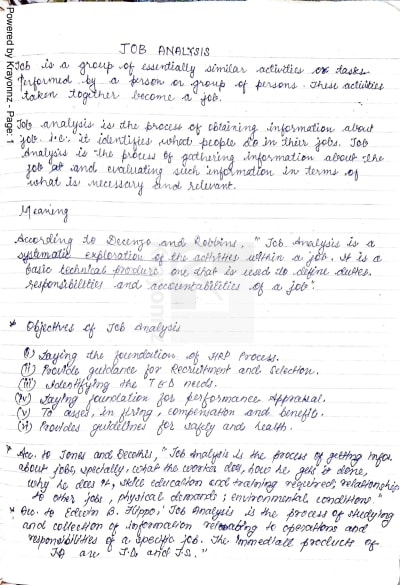 JOB ANALYSIS
Job is a group of essentially similar activities or tasks
Performed by a person or group of persons. These activities
taken together become a job.
Job analysis is the process of obtaining information about
job. i.e. it identifies what people do in their jobs. Job
Analysis is the process of gathering information about the
job at and evaluating such information in terms of
what is necessary and relevant.
Meaning
According to Decenzo and Robbins, " Job Analysis is a
systematic exploration of the activities within a job. It is a
basic technical procedure one that is used to define duties
responsibilities and accountabilities of a job".
* Objectives of Job Analysis
(i) Laying the foundation of HRP Process.
(ii) Provide guidance for Recruitment and Selection.
(iii) Identifying the T & D needs.
(iv) Laying foundation for performance Appraisal.
(v) To asses, in firing, compensation and benefits.
(vi) Provides guidelines for safety and health.
* Acc. to Jones and Decothis, " Job Analysis is the process of getting infor.
about jobs, specially, what the worker does, how he gets it done,
why he does it, skill education and training required, relationship
to other jobs, physical demands ; environmental conditions."
* Acc. to Edwin B. Flippo, ' Job Analysis is the process of studying
and collection of information relating to operations and
responsibilities of a specific job. The immediate products of
JA are J.D. and J.S. "
Powered by Krayonnz - Page: 1